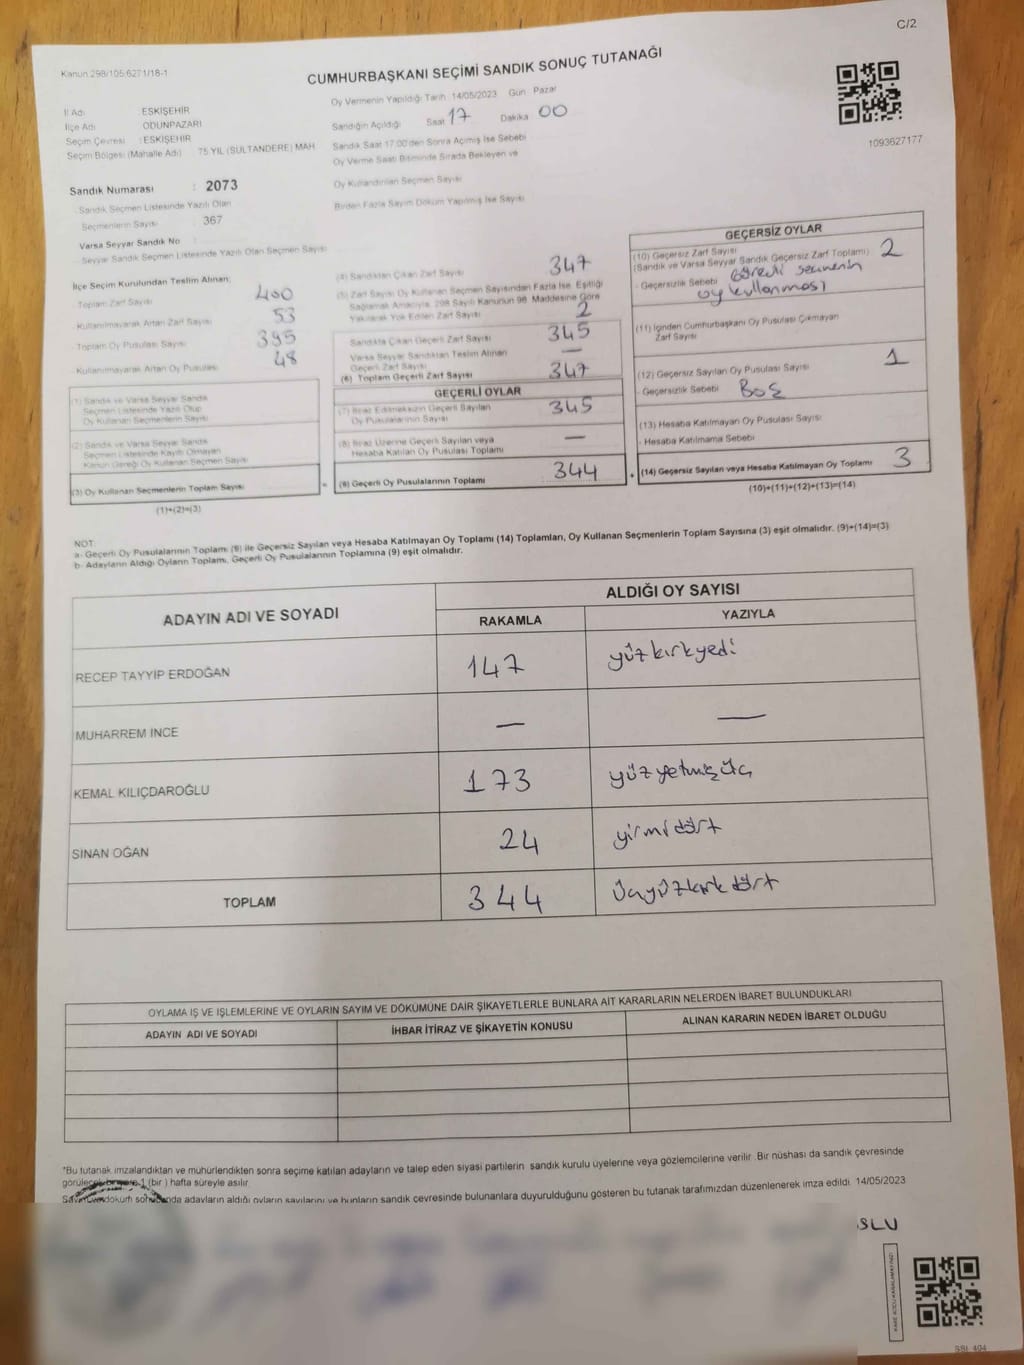 C/2
Kanun 298/105 6271/18-1
CUMHURBAŞKANI SEÇİMİ SANDIK SONUÇ TUTANAĞI
1093627177
İl Adı ESKİŞEHİR
İlçe Adı ODUNPAZARI
Seçim Çevresi : ESKİŞEHİR
Seçim Bölgesi (Mahalle Adı) 75.YIL (SULTANDERE) MAH
Sandık Numarası : 2073
Sandık Seçmen Listesinde Yazılı Olan
Seçmenlerin Sayısı 367
Varsa Seyyar Sandık No
Seyyar Sandık Seçmen Listesinde Yazılı Olan Seçmen Sayısı
Oy Vermenin Yapıldığı Tarih 14/05/2023 Gün Pazar
Sandığın Açıldığı Saat 17 Dakika 00
Sandık Saat 17.00'den Sonra Açılmış İse Sebebi
Oy Verme Saati Bitiminde Sırada Bekleyen ve
Oy Kullandırılan Seçmen Sayısı
Birden Fazla Sayım Döküm Yapılmış İse Sayısı
İlçe Seçim Kurulundan Teslim Alınan:
Toplam Zarf Sayısı 400
Kullanılmayarak Artan Zarf Sayısı 53
Toplam Oy Pusulası Sayısı 395
Kullanılmayarak Artan Oy Pusulası 48
(1) Sandık ve Varsa Seyyar Sandık
Seçmen Listesinde Yazılı Olup
Oy Kullanan Seçmenlerin Sayısı
(2) Sandık ve Varsa Seyyar Sandık
Seçmen Listesinde Kayıtlı Olmayan
Kanun Gereği Oy Kullanan Seçmen Sayısı
(3) Oy Kullanan Seçmenlerin Toplam Sayısı
(1)+(2)=(3)
(4) Sandıktan Çıkan Zarf Sayısı 347
(5) Zarf Sayısı Oy Kullanan Seçmen Sayısından Fazla İse, Eşitliği
Sağlamak Amacıyla, 298 Sayılı Kanunun 98. Maddesine Göre
Yakılarak Yok Edilen Zarf Sayısı 2
Sandıkta Çıkan Geçerli Zarf Sayısı 345
Varsa Seyyar Sandıktan Teslim Alınan
Geçerli Zarf Sayısı —
(6) Toplam Geçerli Zarf Sayısı 347
GEÇERLİ OYLAR
(7) İtiraz Edilmeksizin Geçerli Sayılan
Oy Pusulalarının Sayısı 345
(8) İtiraz Üzerine Geçerli Sayılan veya
Hesaba Katılan Oy Pusulası Toplamı —
(9) Geçerli Oy Pusulalarının Toplamı 344
GEÇERSİZ OYLAR
(10) Geçersiz Zarf Sayısı
(Sandık ve Varsa Seyyar Sandık Geçersiz Zarf Toplamı) 2
- Geçersizlik Sebebi Görevli seçmenin
oy kullanması
(11) İçinden Cumhurbaşkanı Oy Pusulası Çıkmayan
Zarf Sayısı
(12) Geçersiz Sayılan Oy Pusulası Sayısı 1
- Geçersizlik Sebebi Boş
(13) Hesaba Katılmayan Oy Pusulası Sayısı
- Hesaba Katılmama Sebebi
(14) Geçersiz Sayılan veya Hesaba Katılmayan Oy Toplamı 3
(10)+(11)+(12)+(13)=(14)
NOT:
a- Geçerli Oy Pusulalarının Toplamı (9) ile Geçersiz Sayılan veya Hesaba Katılmayan Oy Toplamı (14) Toplamları, Oy Kullanan Seçmenlerin Toplam Sayısına (3) eşit olmalıdır. (9)+(14)=(3)
b- Adayların Aldığı Oyların Toplamı, Geçerli Oy Pusulalarının Toplamına (9) eşit olmalıdır.
ADAYIN ADI VE SOYADI
ALDIĞI OY SAYISI
RAKAMLA YAZIYLA
RECEP TAYYİP ERDOĞAN 147 yüzkırkyedi
MUHARREM İNCE — —
KEMAL KILIÇDAROĞLU 173 yüzyetmişüç
SİNAN OĞAN 24 yirmidört
TOPLAM 344 üçyüzkırkdört
OYLAMA İŞ VE İŞLEMLERİNE VE OYLARIN SAYIM VE DÖKÜMÜNE DAİR ŞİKAYETLERLE BUNLARA AİT KARARLARIN NELERDEN İBARET BULUNDUKLARI
ADAYIN ADI VE SOYADI İHBAR İTİRAZ VE ŞİKAYETİN KONUSU ALINAN KARARIN NEDEN İBARET OLDUĞU
*Bu tutanak imzalandıktan ve mühürlendikten sonra seçime katılan adayların ve talep eden siyasi partilerin sandık kurulu üyelerine veya gözlemcilerine verilir. Bir nüshası da sandık çevresinde
1 (bir) hafta süreyle asılır.
adayların aldığı oyların sayılarını ve bunların sandık çevresinde bulunanlara duyurulduğunu gösteren bu tutanak tarafımızdan düzenlenerek imza edildi. 14/05/2023
SLU